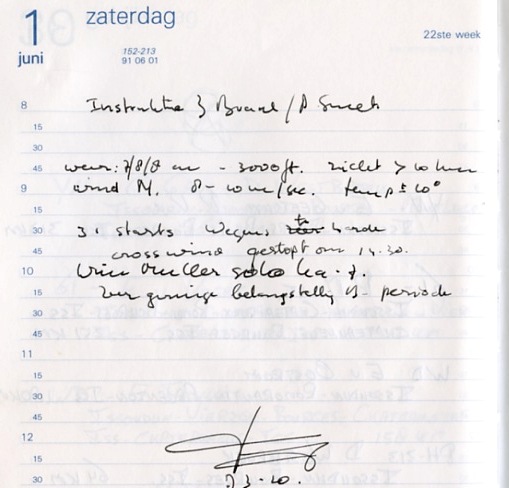 1 zaterdag
juni
152-213
91 06 01
22ste week
8 Instruktie J Brand / A
15
30
45 weer: 7/8/8 cu - 3000ft. zicht > 10 km
9 wind N. 8 - 10 m/sec. temp ± 10°
15
30 3 starts wegens te harde
45 crosswind gestopt om 14.30.
10 solo Ka-7.
15 zeer geringe belangstelling periode
30
45
11
15
30
45
12
15
30